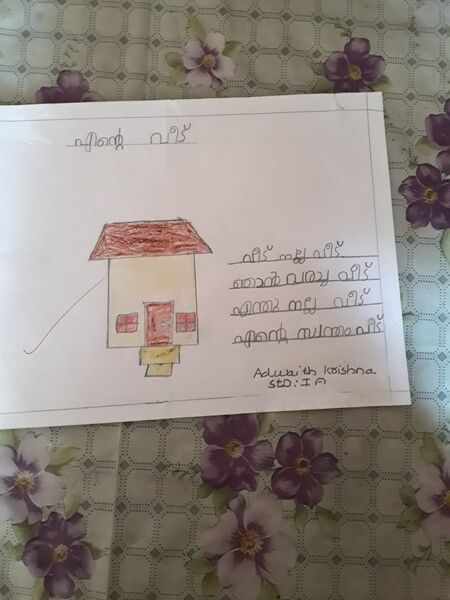 എന്റെ വീട്
വീട് നല്ല വീട്
ഞാൻ വരച്ച വീട്
എന്തു നല്ല വീട്
എന്റെ സ്വന്തം വീട്
Adwaith Krishna
STD : I A